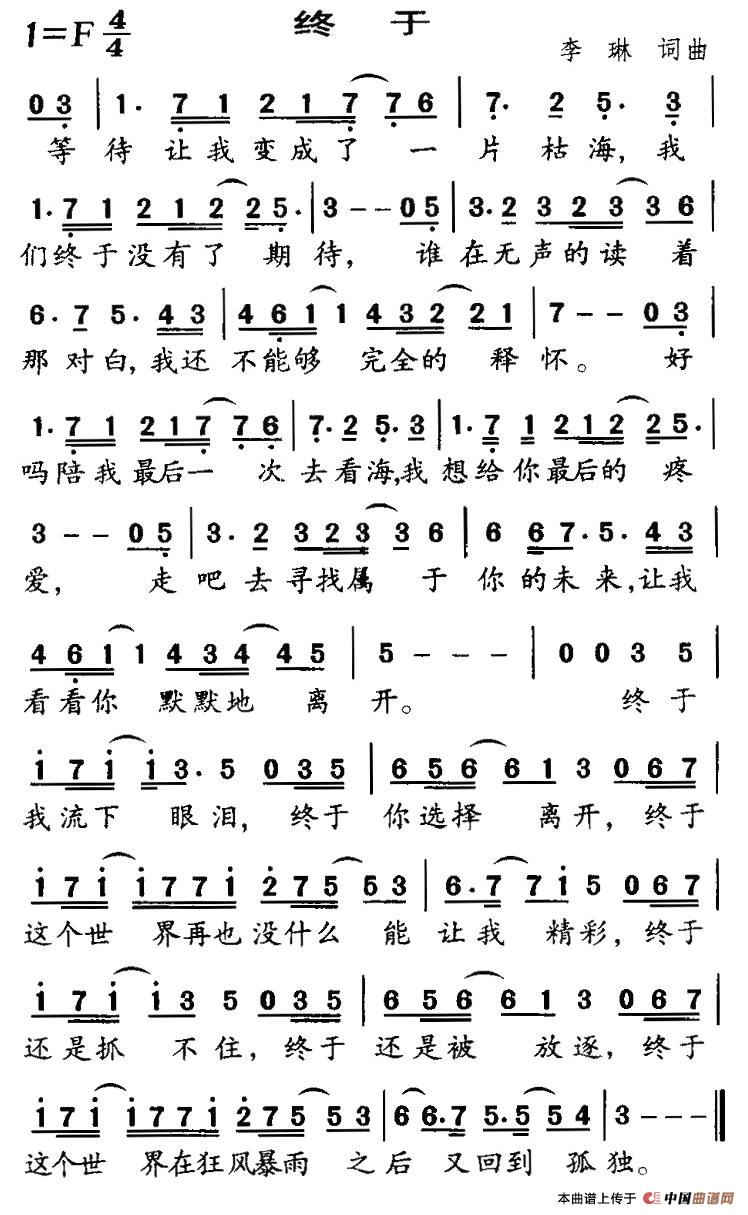 终 于
1=F 4/4
李 琳 词曲
0 3 | 1. 7 1 2 1 7 7 6 | 7. 2 5. 3 |
等 待 让 我 变 成 了 一 片 枯 海, 我
1. 7 1 2 1 2 2 5. | 3 - - 0 5 | 3. 2 3 2 3 3 6 |
们 终 于 没 有 了 期 待, 谁 在 无 声 的 读 着
6. 7 5. 4 3 | 4 6 1 1 4 3 2 2 1 | 7 - - 0 3 |
那 对 白, 我 还 不 能 够 完 全 的 释 怀。 好
1. 7 1 2 1 7 7 6 | 7. 2 5. 3 | 1. 7 1 2 1 2 2 5. |
吗 陪 我 最 后 一 次 去 看 海, 我 想 给 你 最 后 的 疼
3 - - 0 5 | 3. 2 3 2 3 3 6 | 6 6 7. 5. 4 3 |
爱, 走 吧 去 寻 找 属 于 你 的 未 来, 让 我
4 6 1 1 4 3 4 4 5 | 5 - - - | 0 0 3 5 |
看 看 你 默 默 地 离 开。 终 于
1 7 1 1 3. 5 0 3 5 | 6 5 6 6 1 3 0 6 7 |
我 流 下 眼 泪, 终 于 你 选 择 离 开, 终 于
1 7 1 1 7 7 1 2 7 5 5 3 | 6. 7 7 1 5 0 6 7 |
这 个 世 界 再 也 没 什 么 能 让 我 精 彩, 终 于
1 7 1 1 3 5 0 3 5 | 6 5 6 6 1 3 0 6 7 |
还 是 抓 不 住, 终 于 还 是 被 放 逐, 终 于
1 7 1 1 7 7 1 2 7 5 5 3 | 6 6. 7 5. 5 5 4 | 3 - - - ‖
这 个 世 界 在 狂 风 暴 雨 之 后 又 回 到 孤 独。
本曲谱上传于 中国曲谱网